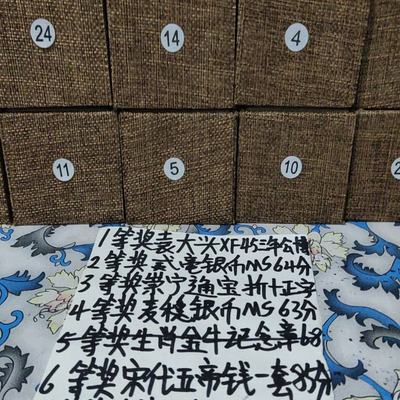 24 14 4
11 5 10 2
1等奖袁大头XF45三年公博
2等奖贰毫银币MS64分
3等奖崇宁通宝折十正字
4等奖麦穗银币MS63分
5等奖生肖金牛记念章68
6等奖宋代五帝钱一套85分